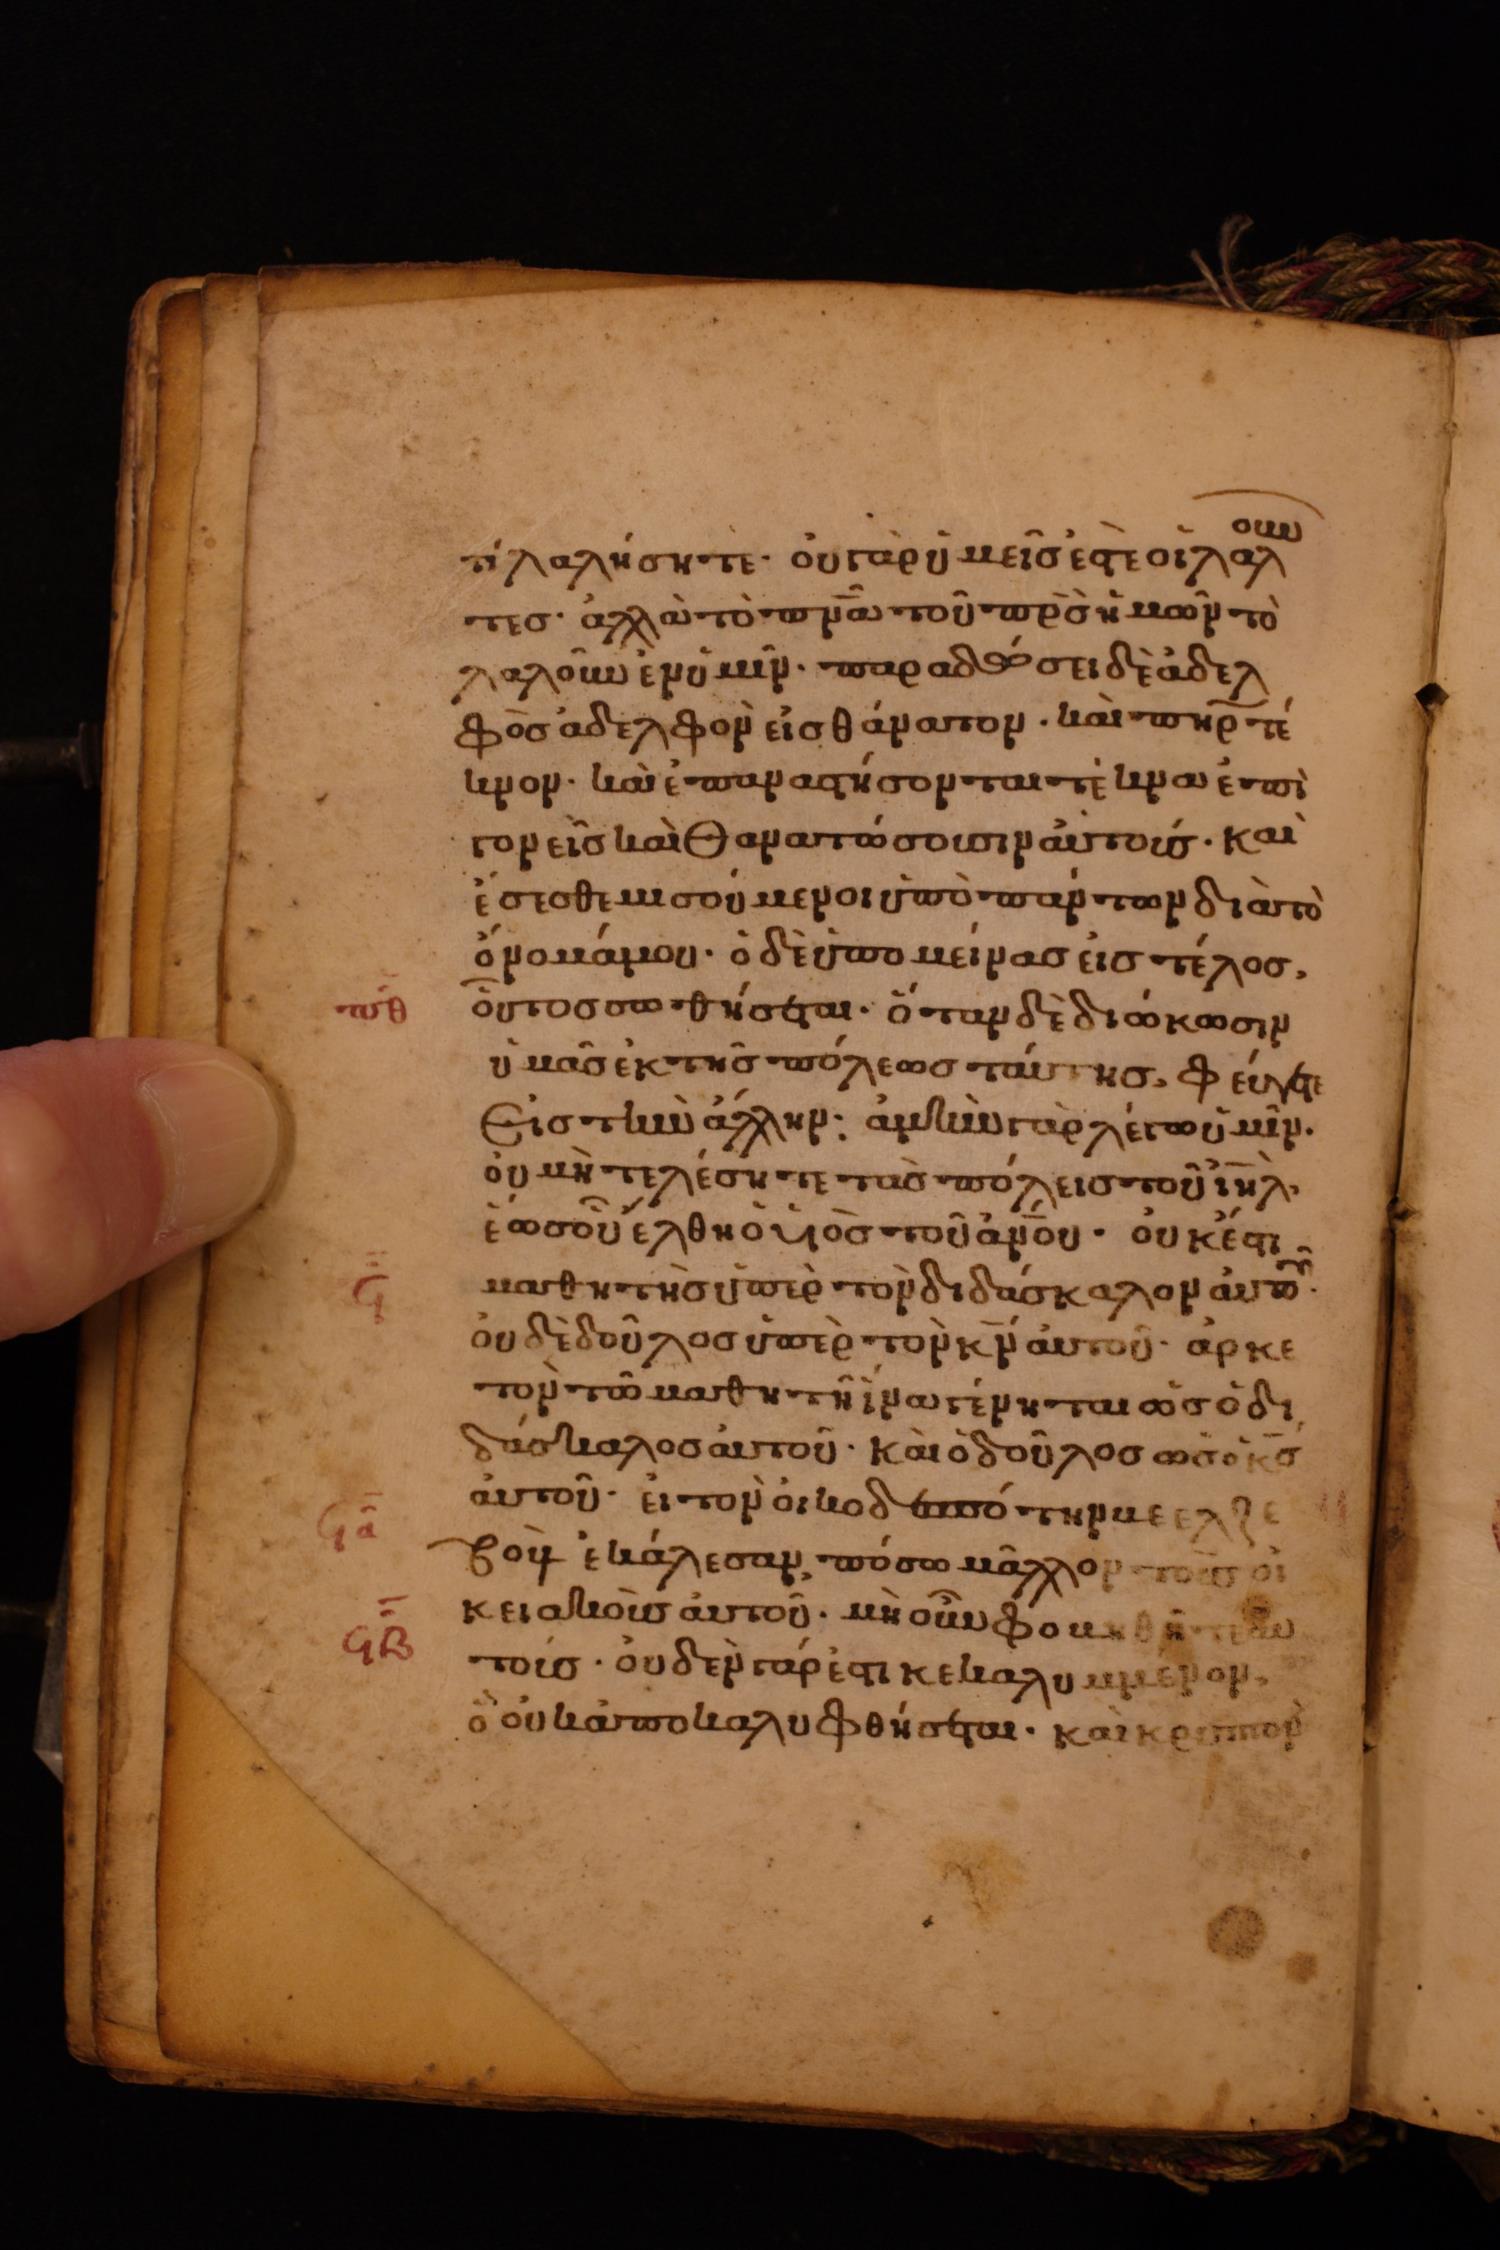 τί λαλήσητε· οὐ γὰρ ὑμεῖς ἐστὲ οἱ λαλοῦν
τες· ἀλλὰ τὸ πν̅α̅ τοῦ πρ̅ς̅ ἡμῶν τὸ
λαλοῦν ἐν ὑμῖν· παραδώσει δὲ ἀδελ
φὸς ἀδελφὸν εἰς θάνατον· καὶ πη̅ρ̅ τέ
κνον· καὶ ἐπαναστήσονται τέκνα ἐπὶ
γονεῖς καὶ θανατώσουσιν αὐτούς· καὶ
ἔσεσθε μισούμενοι ὑπὸ πάντων διὰ τὸ
ὄνομά μου· ὁ δὲ ὑπομείνας εἰς τέλος,
πθ οὗτος σωθήσεται· ὅταν δὲ διώκωσιν
ὑμᾶς ἐκ τῆς πόλεως ταύτης, φεύγετε
εἰς τὴν ἄλλην· ἀμὴν γὰρ λέγω ὑμῖν·
οὐ μὴ τελέσητε τὰς πόλεις τοῦ ι̅η̅λ̅,
ἕως οὗ ἔλθη ὁ υἱὸς τοῦ α̅ν̅ο̅υ̅· οὐκ ἔστι
ϟ μαθητὴς ὑπὲρ τὸν διδάσκαλον αὐτοῦ·
οὐδὲ δοῦλος ὑπὲρ τὸν κ̅ν̅ αὐτοῦ· ἀρκε
τὸν τῶ μαθητῆ ἵνα γένηται ὡς ὁ δι
δάσκαλος αὐτοῦ· καὶ ὁ δοῦλος ὡς ὁ κ̅ς̅
ϟα αὐτοῦ· εἰ τὸν οἰκοδεσπότην βεελζε
βοὺλ ἐκάλεσαν, πόσω μᾶλλον τοὺς οἰ
ϟβ κειακοὺς αὐτοῦ· μὴ οὖν φοβηθῆτε αὐ
τούς· οὐδὲν γάρ ἐστι κεκαλυμμένον,
ὃ οὐκ ἀποκαλυφθήσεται· καὶ κρυπτὸν